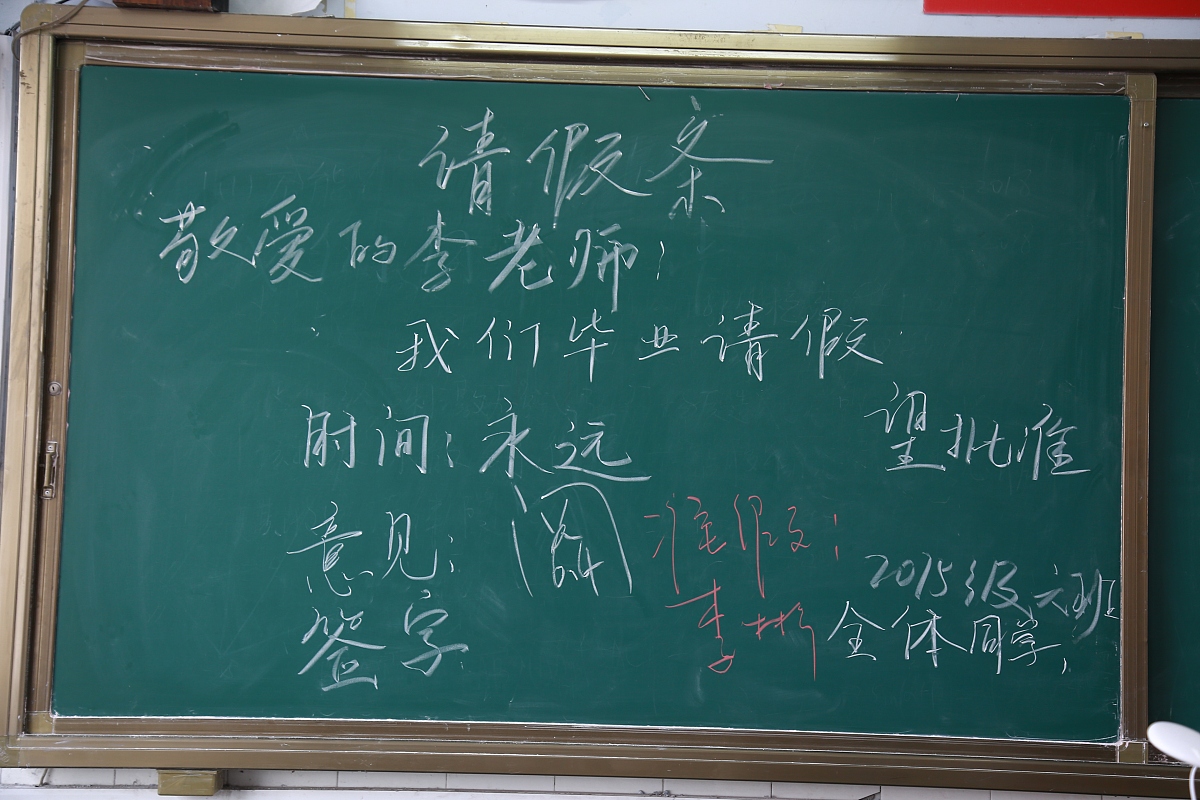 请假条
敬爱的李老师:
我们毕业请假
时间:永远
望批准
意见:
准假:
签字
李彬
2015级六班
全体同学,